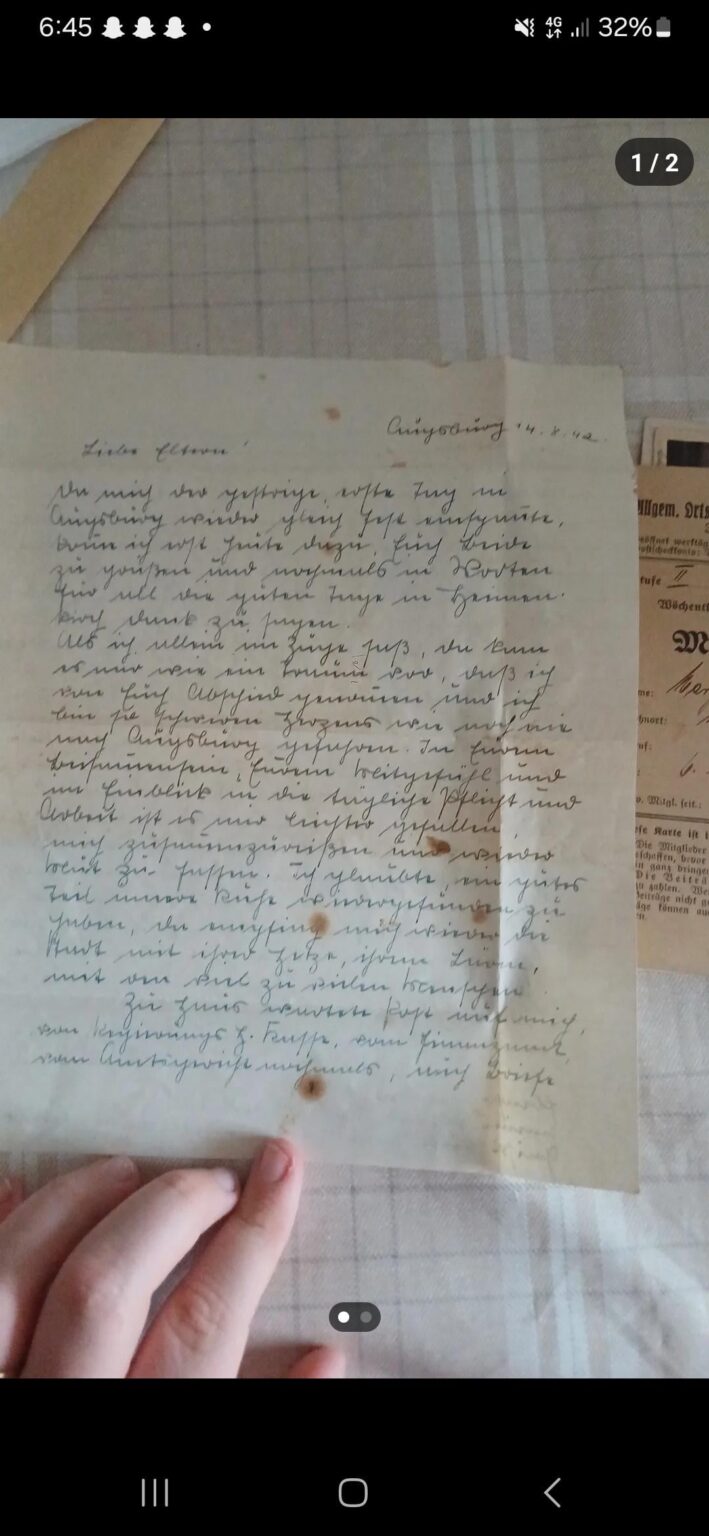 6:45
4G
32%
1 / 2
Augsburg 14.8.42.
Liebe Eltern!
Da mich der gestrige, erste Tag in
Augsburg wieder gleich fest einspannte,
komme ich erst heute dazu, Euch beide
zu grüßen und nochmals in Worten
für all die guten Tage in
Dank zu sagen.
Als ich allein im Zuge saß, da kam
es mir wie ein Traum vor, daß ich
von Euch Abschied genommen und ich
bin so schweren Herzens wie noch nie
nach Augsburg gefahren. In Eurem
Beisammensein, Eurem Mitgefühl und
im Einblick in die tägliche Pflicht und
Arbeit ist es mir leichter gefallen,
mich zusammenzureißen und wieder
Mut zu fassen. Ich glaubte, ein gutes
Teil innere Ruhe wiedergefunden zu
haben, da empfing mich wieder die
Stadt mit ihrer Hetze, ihrem Lärm,
mit den viel zu vielen Menschen
Zu Haus wartete Post auf mich,
von Regierungs H. Kasse, vom Finanzamt,
vom Amtsgericht nochmals, auch Briefe
Allgem. Orts
tufe II
Wöchentl
M
me:
hnort:
uf:
o. Mitgl. seit:
se Karte ist
Die Mitglieder
schaffen, bevor
in ganz dringen
Die Beiträ
zu zahlen. We
Beiträge nicht
äge können au